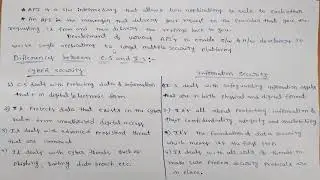 * API is a s/w intermediary that allows two applications to talk to eachother
* An API is the messenger that delivers your request to the provider that you are
requesting it from and then delivers the response back to you.
Development of various API's to enable s/w & h/w developers to
write single applications to target multiple security platforms
Differences between C.S and I.S :-
cyber security
Information Security
1) C.S deals with protecting data & information
that is in digital/electronic form
1) I.S deals with safeguarding information assets
that are in both physical and digital format
2) It protects data that exists in the cyber
realm from unauthorized digital access
2) It's all about protecting information &
their confidentiality, integrity and availability
3) It deals with advanced persistent threat
that are
3) It's the foundation of data security
which means it's the first step
4) It deals with cyber threats such as
phishing, data breach etc.
4) It deals with all sorts of threats to
make sure proper security protocols are
in place.